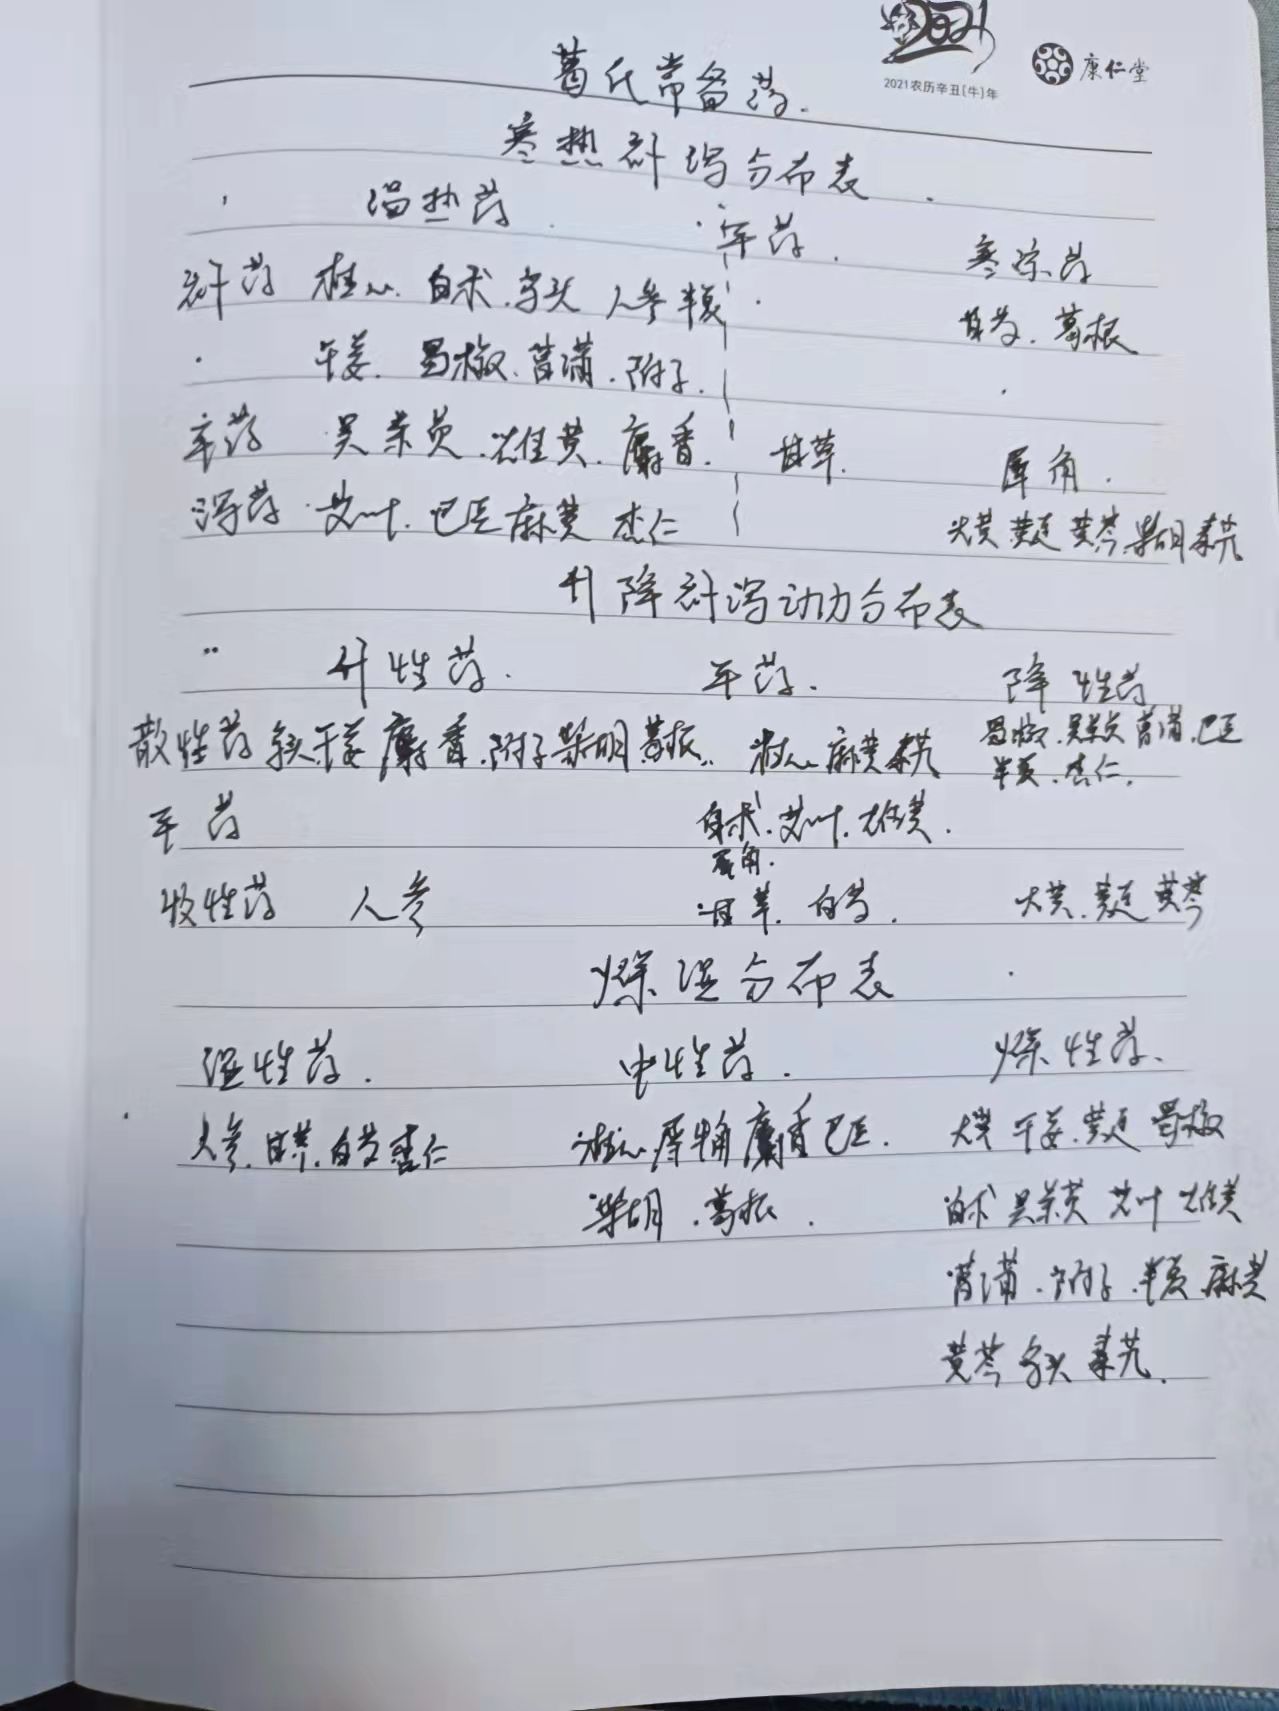 2021
2021农历辛丑(牛)年
康仁堂
葛氏常备药.
寒热补泻分布表.
温热药 平药. 寒凉药
补药 桂心. 白术. 乌头 人参 半夏 白芍. 葛根
干姜. 蜀椒. 菖蒲. 附子.
平药 吴茱萸. 雄黄. 麝香. 甘草. 犀角.
泻药 艾叶. 巴豆 麻黄 杏仁 大黄 黄连 黄芩. 柴胡 秦艽
升降补泻动力分布表
升性药. 平药. 降性药
散性药 乌头. 干姜 麝香. 附子 柴胡 葛根. 桂心 麻黄 秦艽 蜀椒. 吴茱萸 菖蒲. 巴豆
半夏. 杏仁.
平药 白术. 艾叶. 雄黄.
犀角.
收性药 人参 甘草. 白芍. 大黄. 黄连 黄芩
燥湿分布表
湿性药. 中性药. 燥性药.
人参. 甘草. 白芍 杏仁 桂心 犀角 麝香 巴豆. 大黄 干姜. 黄连 蜀椒
柴胡. 葛根. 白术 吴茱萸 艾叶 雄黄
菖蒲. 附子. 半夏 麻黄
黄芩 乌头 秦艽.